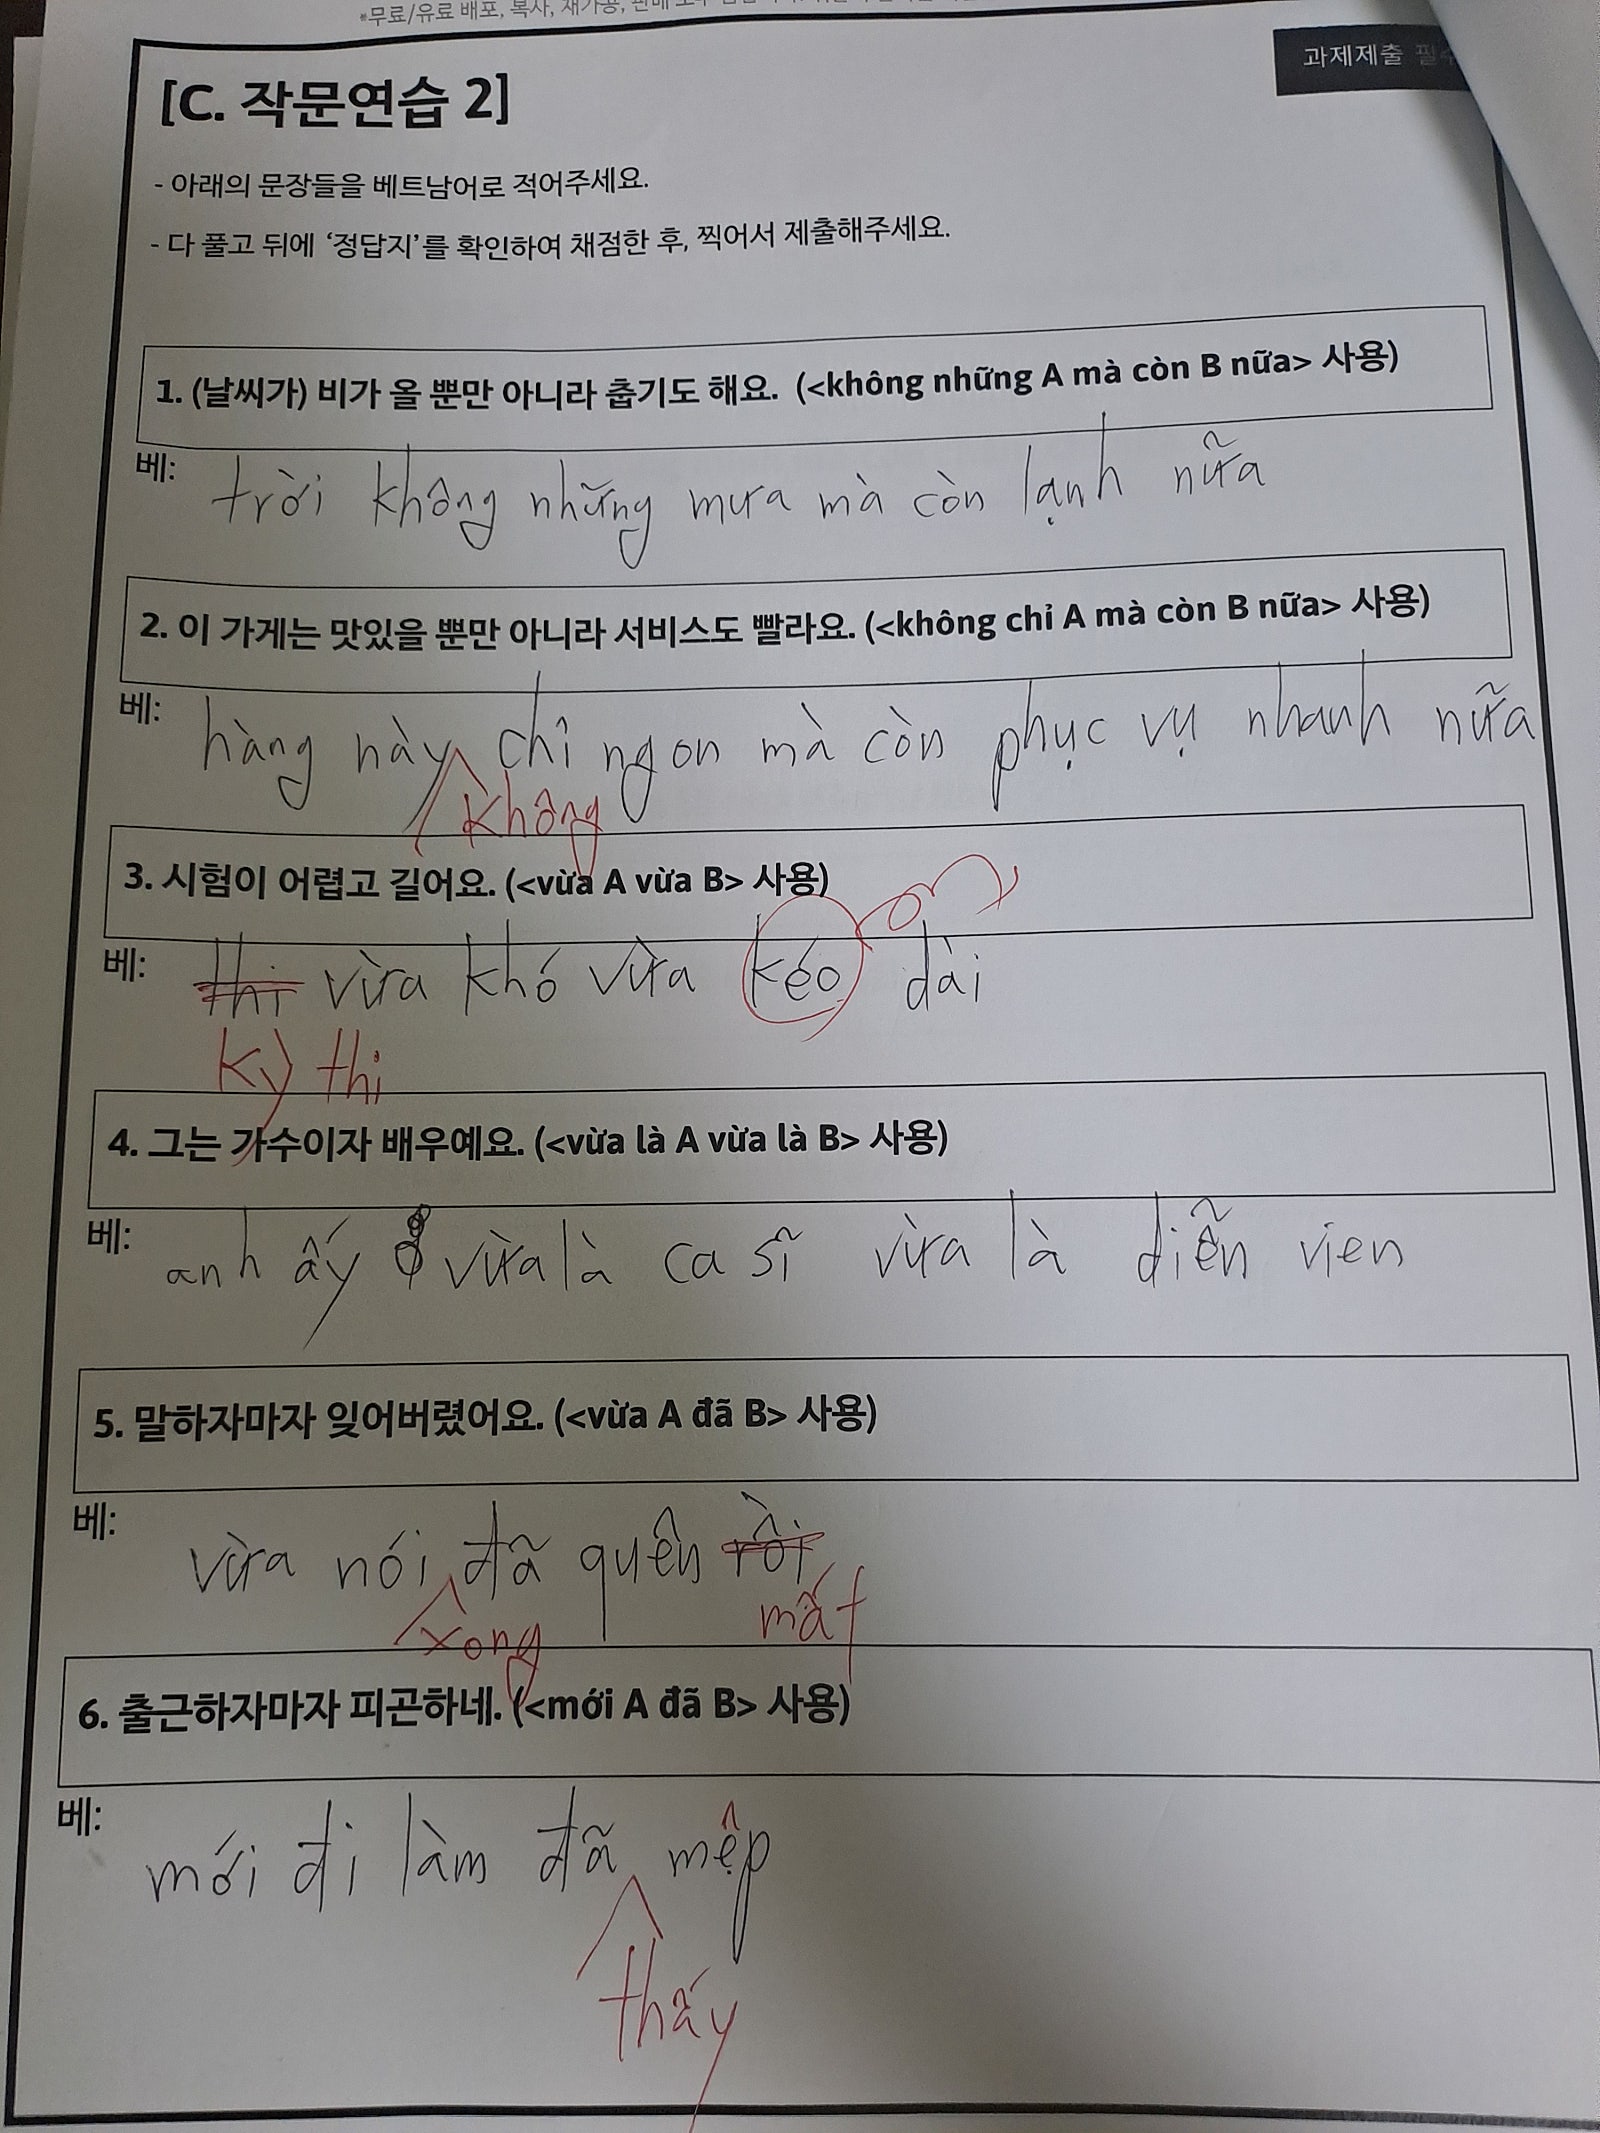 *무료/유료 배포, 복사, 재가공, 판매
[C. 작문연습 2]
과제제출 필수
- 아래의 문장들을 베트남어로 적어주세요.
- 다 풀고 뒤에 ‘정답지’를 확인하여 채점한 후, 찍어서 제출해주세요.
1. (날씨가) 비가 올 뿐만 아니라 춥기도 해요. (<không những A mà còn B nữa> 사용)
베: trời không những mưa mà còn lạnh nữa
2. 이 가게는 맛있을 뿐만 아니라 서비스도 빨라요. (<không chỉ A mà còn B nữa> 사용)
베: hàng này chỉ ngon mà còn phục vụ nhanh nữa
không
3. 시험이 어렵고 길어요. (<vừa A vừa B> 사용)
베: thi vừa khó vừa kéo dài
kỳ thi
4. 그는 가수이자 배우예요. (<vừa là A vừa là B> 사용)
베: anh ấy vừa là ca sĩ vừa là diễn vien
5. 말하자마자 잊어버렸어요. (<vừa A đã B> 사용)
베: vừa nói đã quên rồi
xong mất
6. 출근하자마자 피곤하네. (<mới A đã B> 사용)
베: mới đi làm đã mệp
thấy